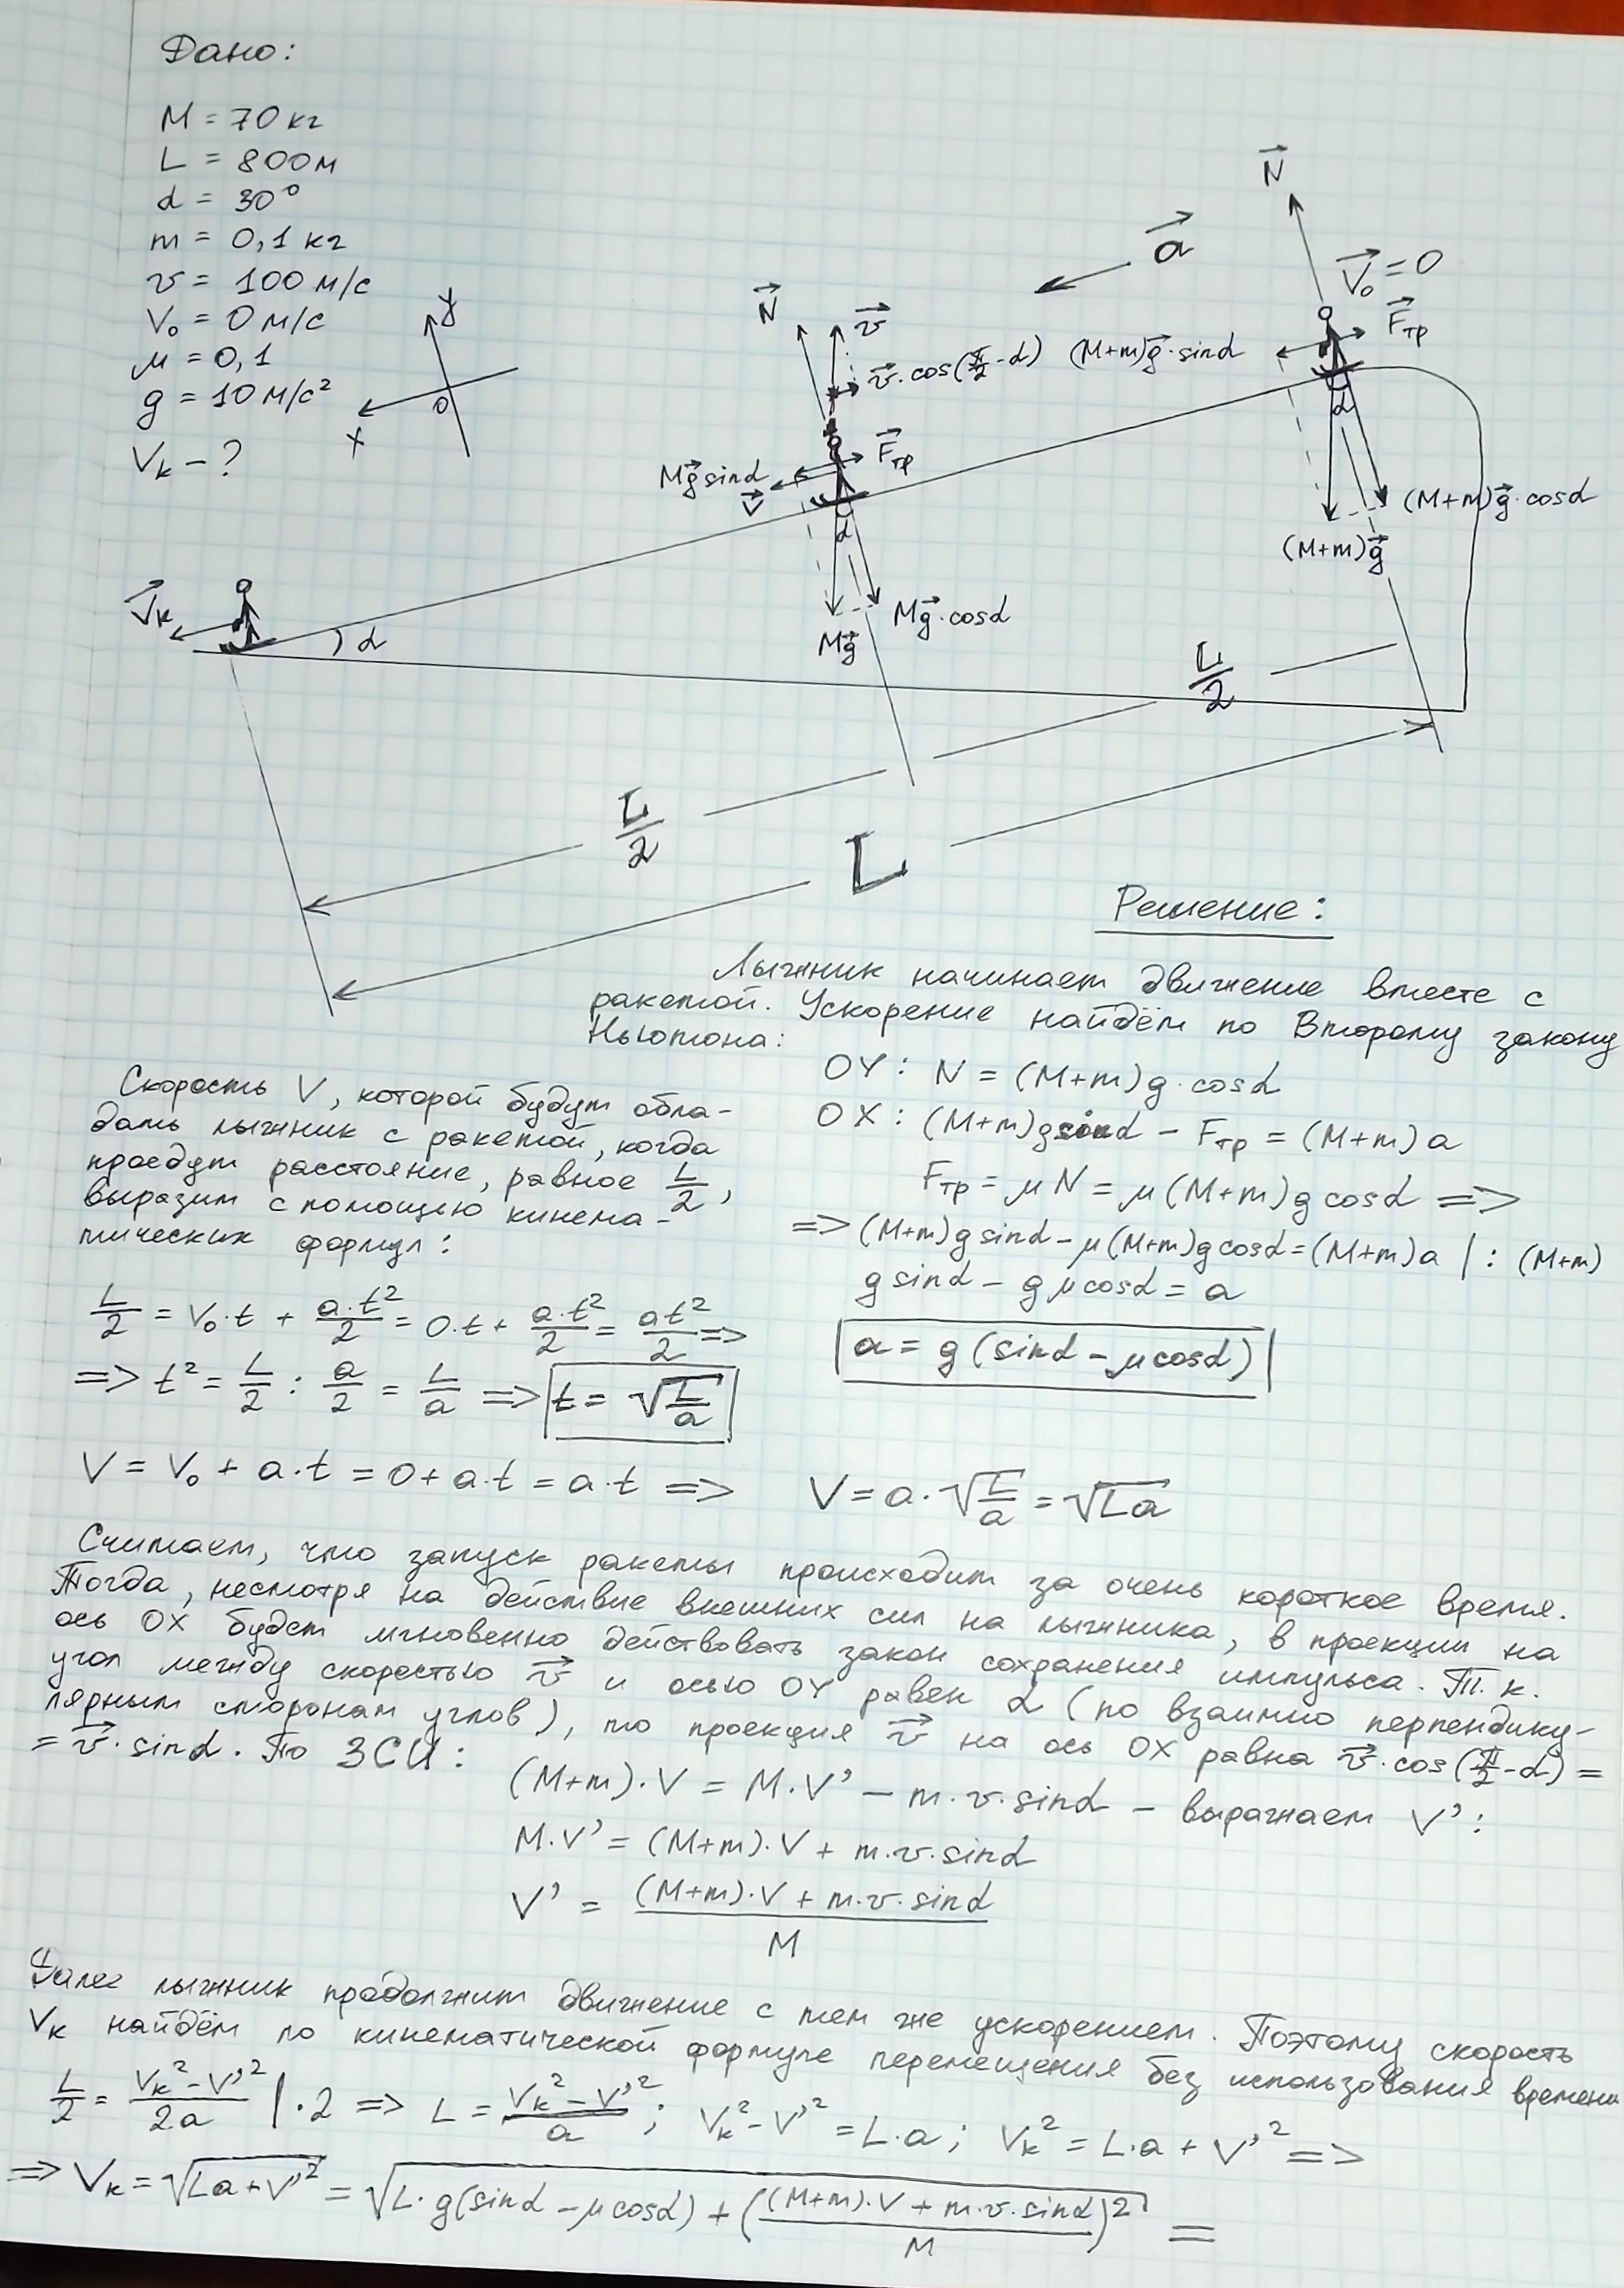 Дано:
M = 70 кг
L = 800 м
α = 30°
m = 0,1 кг
v = 100 м/с
V₀ = 0 м/с
μ = 0,1
g = 10 м/с²
Vк - ?
y
O
x
N⃗
v⃗
v⃗·cos(π/2-α)
Mg⃗ sinα
V⃗
F⃗тр
α
Mg⃗
Mg⃗·cosα
a⃗
N⃗
V⃗₀ = 0
F⃗тр
(M+m)g⃗·sinα
α
(M+m)g⃗·cosα
(M+m)g⃗
V⃗к
α
L/2
L/2
L
Решение:
Лыжник начинает движение вместе с
ракетой. Ускорение найдём по Второму закону
Ньютона:
OY: N = (M+m)g·cosα
OX: (M+m)g sinα - Fтр = (M+m)a
Fтр = μN = μ(M+m)g cosα =>
=> (M+m)g sinα - μ(M+m)g cosα = (M+m)a | : (M+m)
g sinα - gμcosα = a
a = g(sinα - μcosα)
Скорость V, которой будут обла-
дать лыжник с ракетой, когда
проедут расстояние, равное L/2,
выразим с помощью кинема-
тических формул:
L/2 = V₀·t + a·t²/2 = 0·t + a·t²/2 = at²/2 =>
=> t² = L/2 : a/2 = L/a => t = √(L/a)
V = V₀ + a·t = 0 + a·t = a·t => V = a·√(L/a) = √(La)
Считаем, что запуск ракеты происходит за очень короткое время.
Тогда, несмотря на действие внешних сил на лыжника, в проекции на
ось OX будет мгновенно действовать закон сохранения импульса. Т.к.
угол между скоростью v⃗ и осью OY равен α (по взаимно перпендику-
лярным сторонам углов), то проекция v⃗ на ось OX равна v⃗·cos(π/2-α) =
= v⃗·sinα. По ЗСИ:
(M+m)·V = M·V' - m·v·sinα - выражаем V':
M·V' = (M+m)·V + m·v·sinα
V' = ((M+m)·V + m·v·sinα)/M
Далее лыжник продолжит движение с тем же ускорением. Поэтому скорость
Vк найдём по кинематической формуле перемещения без использования времени
L/2 = (Vк² - V'²)/2a | ·2 => L = (Vк² - V'²)/a ; Vк² - V'² = L·a; Vк² = L·a + V'² =>
=> Vк = √(La + V'²) = √(L·g(sinα - μcosα) + (((M+m)·V + m·v·sinα)/M)²) =